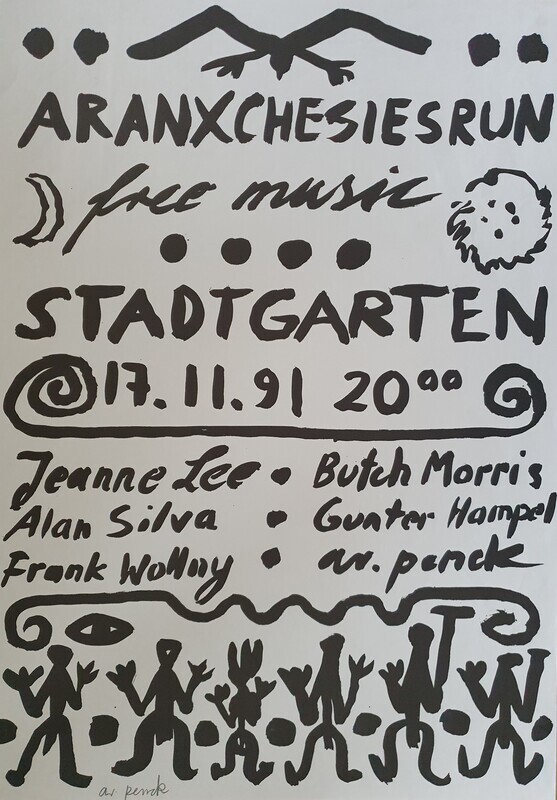 ARANXCHESIESRUN
free music
STADTGARTEN
17.11.91 20⁰⁰
Jeanne Lee • Butch Morris
Alan Silva • Gunter Hampel
Frank Wollny • ar. penck
ar. penck